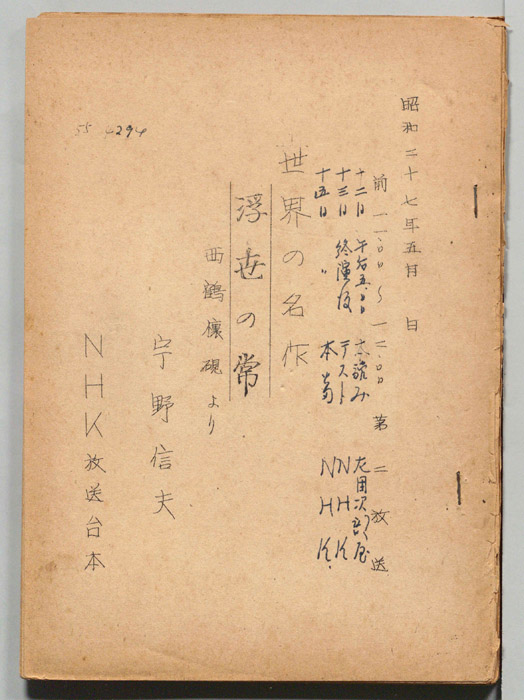 昭和二十七年五月 日
前 一一.〇〇〜一二.〇〇 第二放送
十二日 午后五.〇〇 本読み 左団次部屋
十三日 終演后 テスト NHK
十五日 〃 本番 NHK.
世界の名作
浮世の常
西鶴 硯より
宇野信夫
NHK放送台本
55 4294